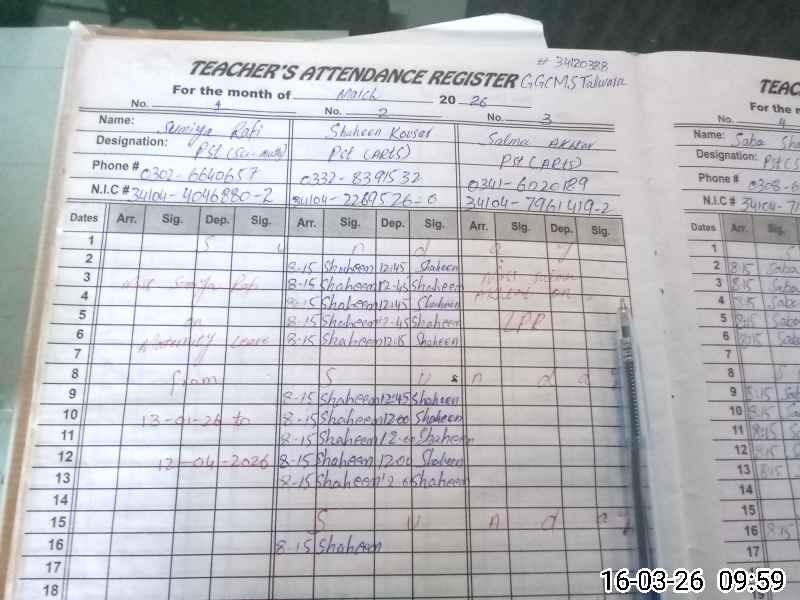 # 34120328
TEACHER'S ATTENDANCE REGISTER GGCMS Talwara
For the month of March 20 26
No. 1 No. 2 No. 3
Name: Sumiya Rafi Shaheen Kousar Salma Akhtar
Designation: Pst (Sci-math) Pst (ARTS) Pst (ARTS)
Phone # 0302-6640657 0332-8391532 0341-6020189
N.I.C # 34104-4046880-2 34104-2269526-0 34104-7961419-2
Dates Arr. Sig. Dep. Sig. Arr. Sig. Dep. Sig. Arr. Sig. Dep. Sig.
1 S u n d a y
2 8-15 Shaheen 12:45 Shaheen
3 Miss Sumiya Rafi 8-15 Shaheen 12-45 Shaheen Miss Salma
4 8-15 Shaheen 12:45 Shaheen Akhtar on
5 on 8-15 Shaheen 12-45 Shaheen LPR
6 Maternity Leave 8-15 Shaheen 12:15 Shaheen
7
8 from S u n d a
9 8-15 Shaheen 12:45 Shaheen
10 13-01-26 to 8-15 Shaheen 12:00 Shaheen
11 8-15 Shaheen 12-00 Shaheen
12 12-04-2026 8-15 Shaheen 12:00 Shaheen
13 8-15 Shaheen Shaheen
14
15 S u n d a y
16 8-15 Shaheen
17
18
TEAC
For the m
No. 4
Name: Saba
Designation: Pst (S
Phone # 0308-6
N.I.C # 34104-71
Dates Arr. Sig.
1 S
2 8:15 Saba
3 8:15 Saba
4 8:15 Saba
5 8:15 Saba
6 8:15 Saba
7
8 S
9 8:15 Saba
10 8:15 Saba
11 8:15 Saba
12 8:15 Saba
13 8:15
14
15
16 8:15
17
16-03-26 09:59